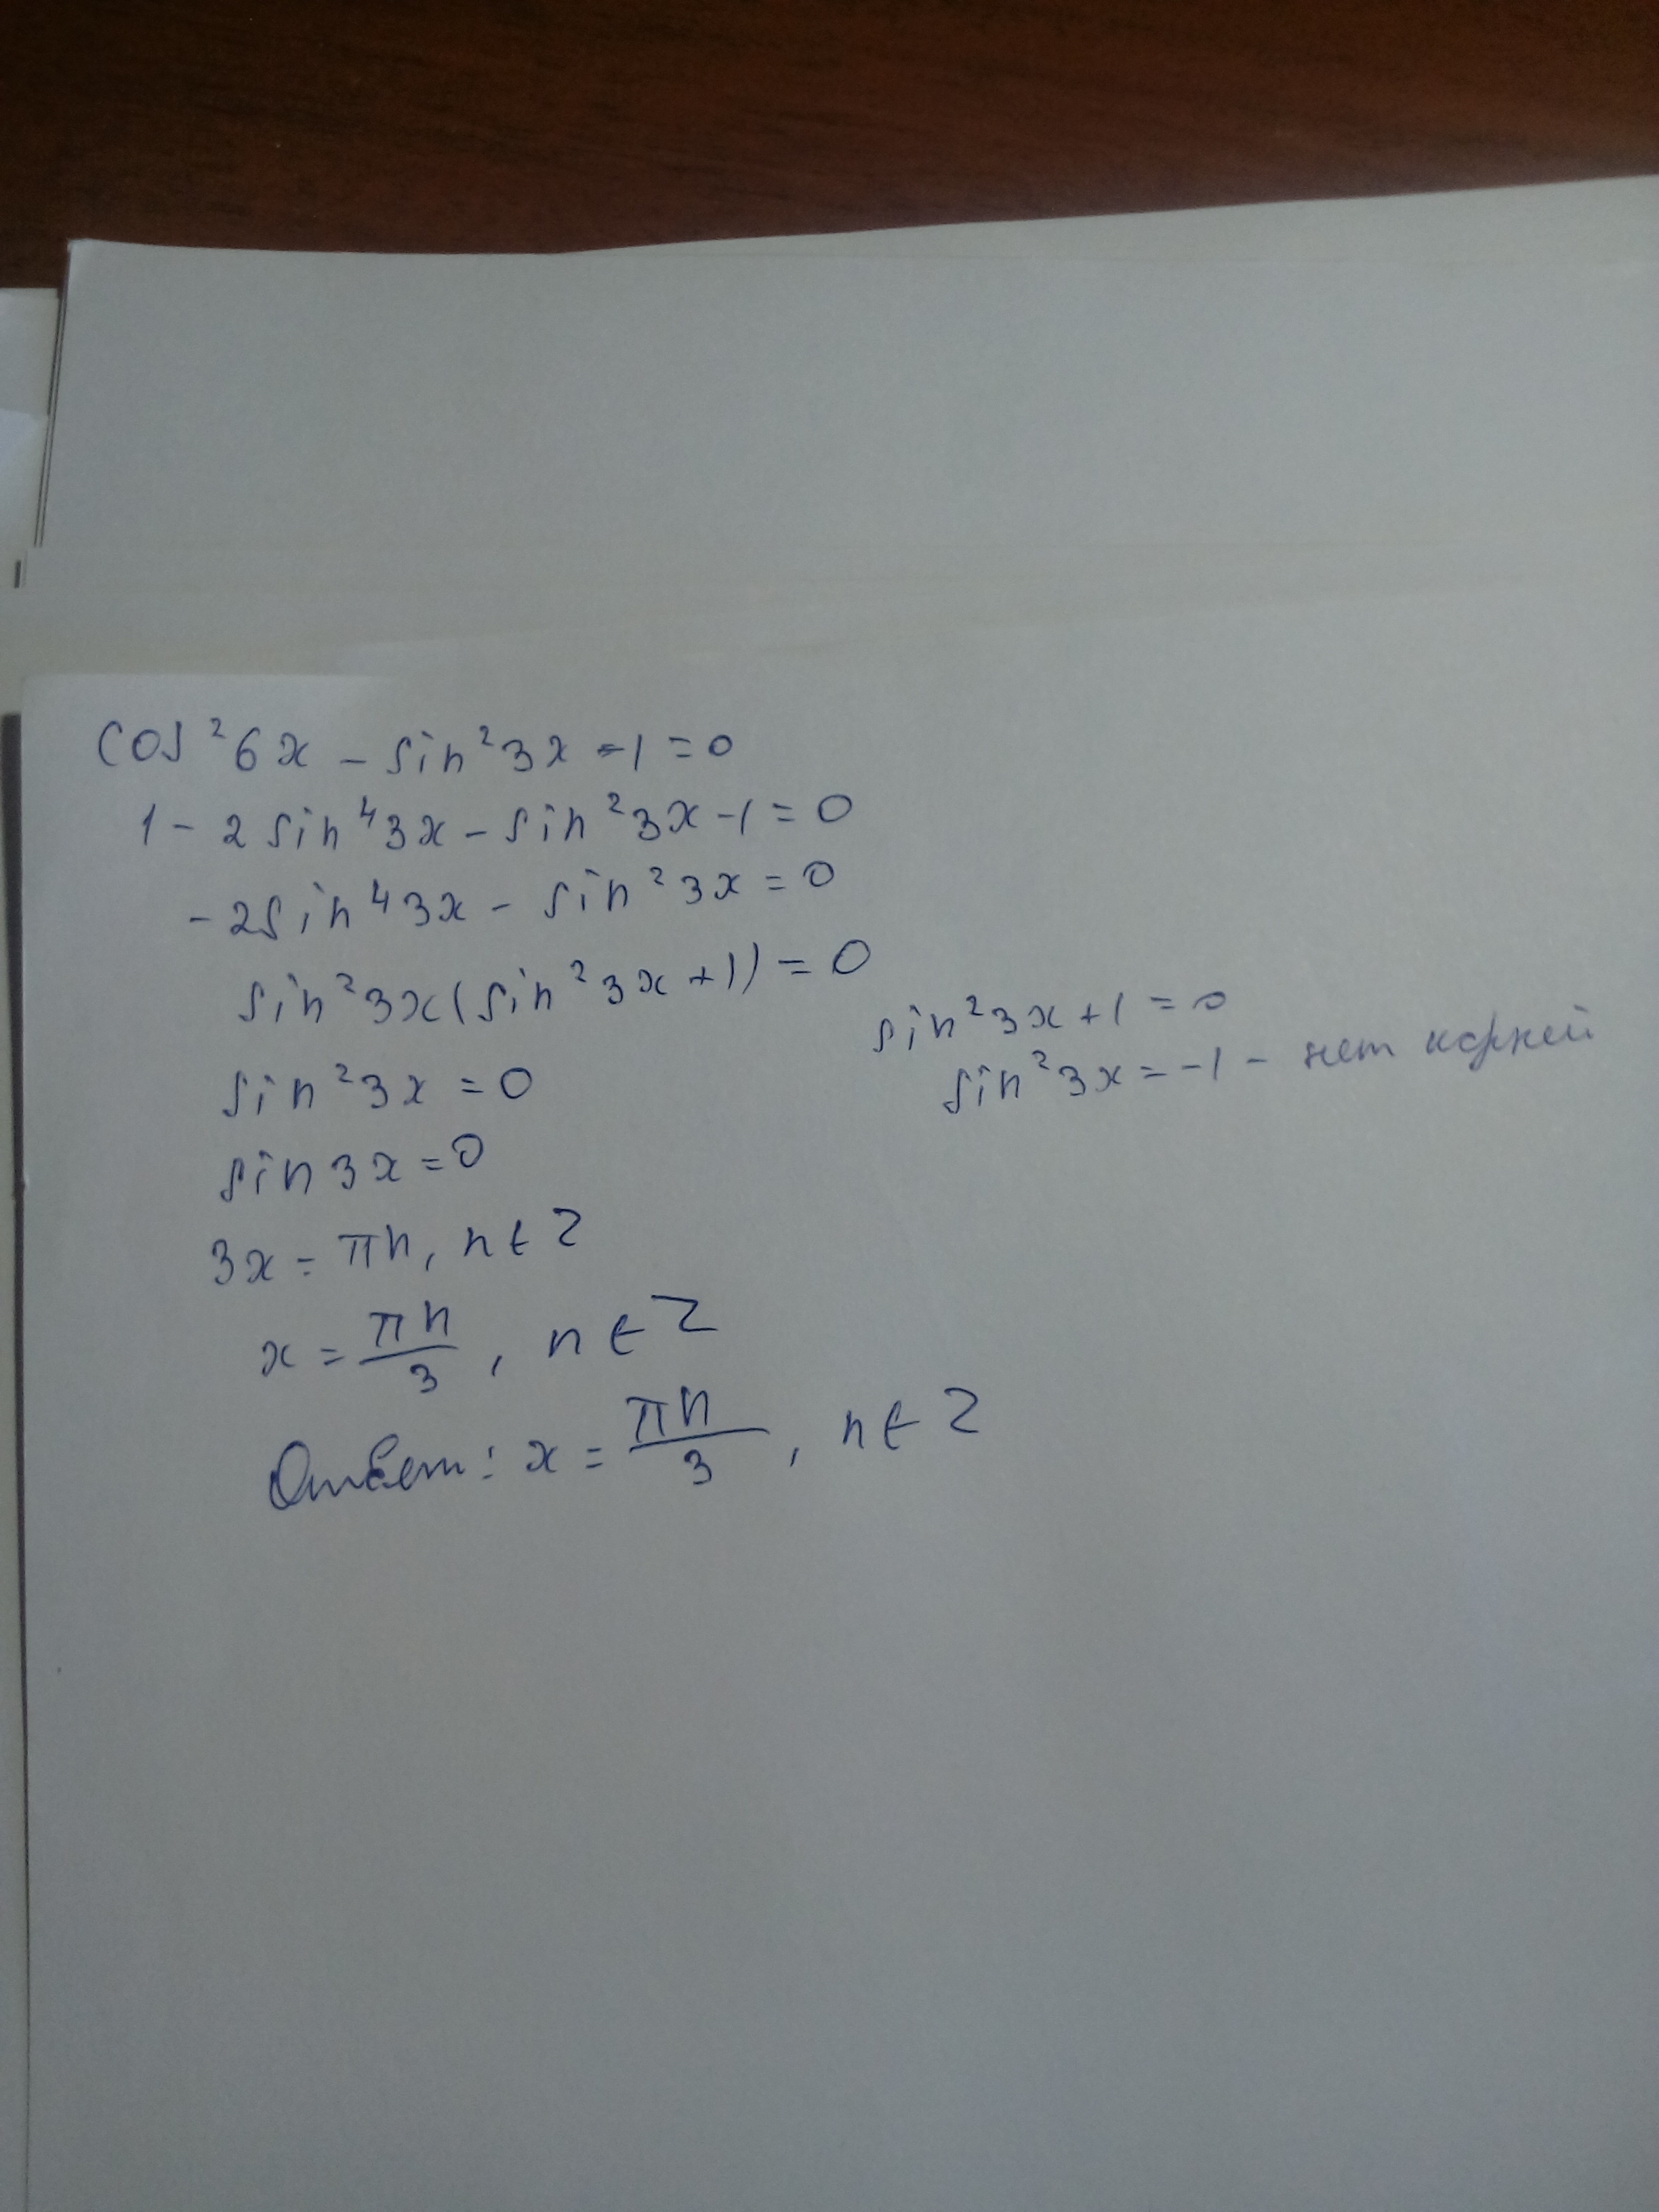 cos²6x - sin²3x - 1 = 0
1 - 2 sin⁴3x - sin²3x - 1 = 0
- 2sin⁴3x - sin²3x = 0
sin²3x(sin²3x + 1) = 0
sin²3x + 1 = 0
sin²3x = -1 - нет корней
sin²3x = 0
sin3x = 0
3x = πn, n ∈ Z
x = πn/3, n ∈ Z
Ответ: x = πn/3, n ∈ Z